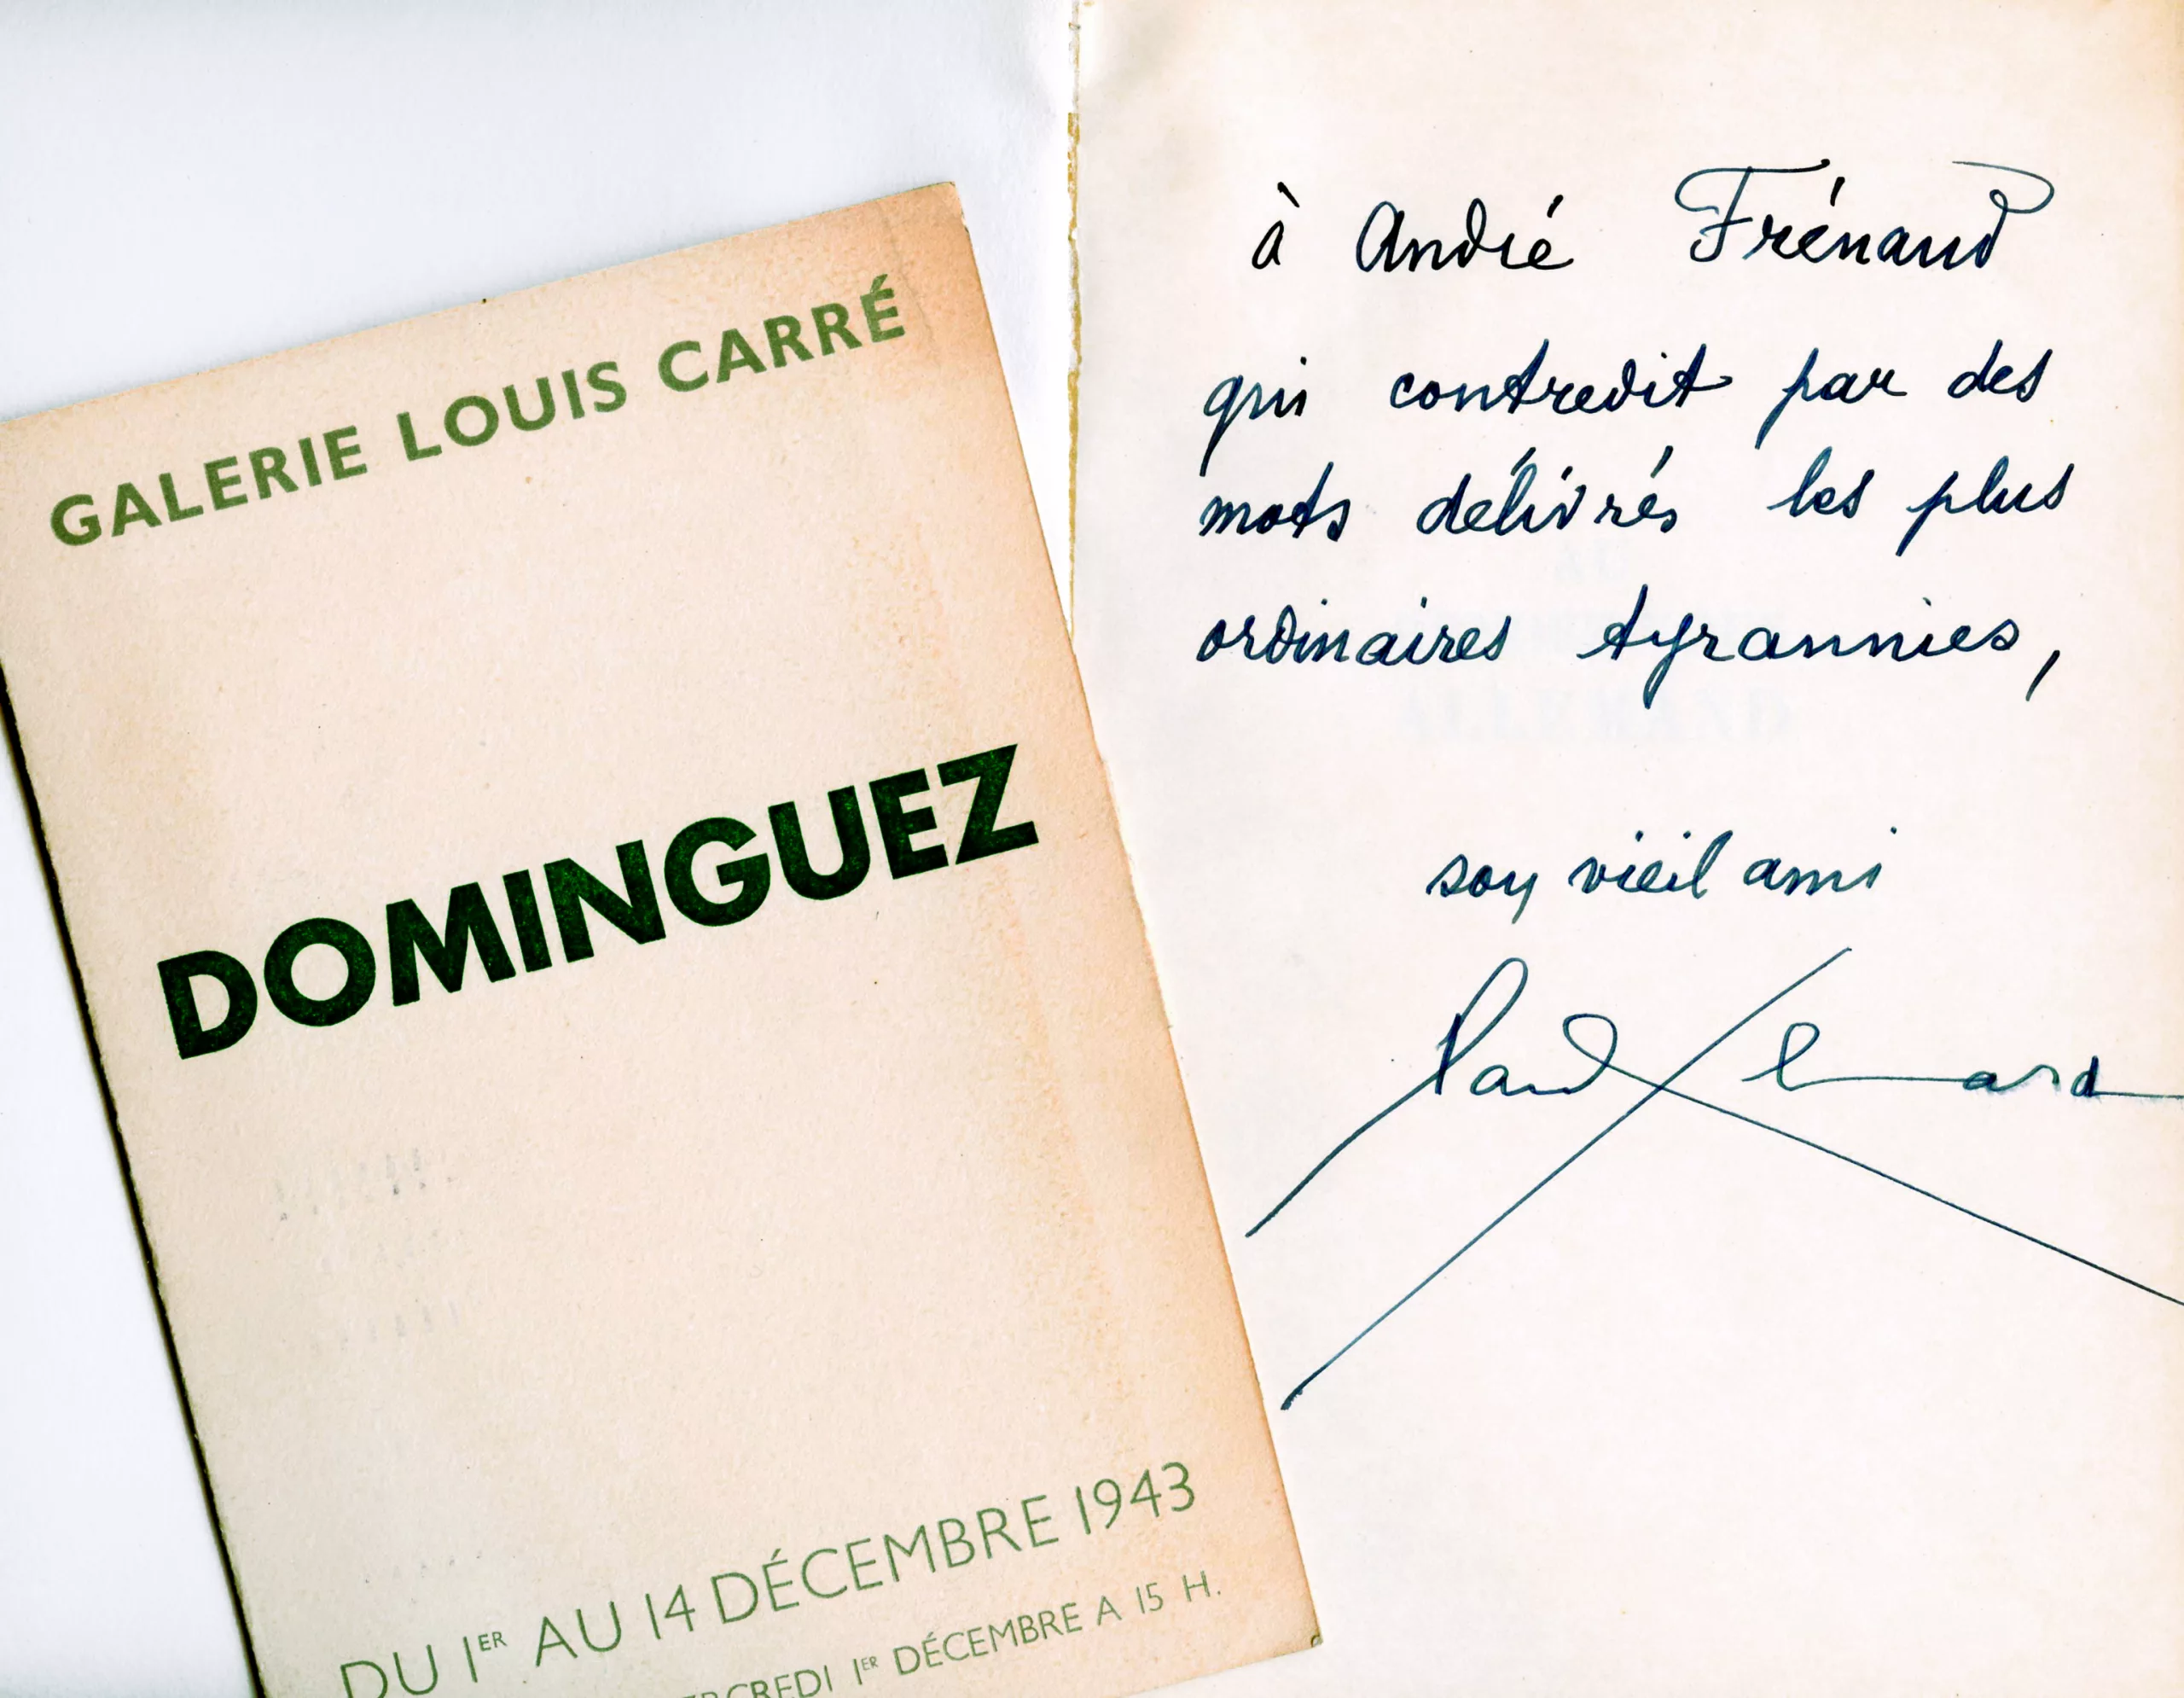 GALERIE LOUIS CARRÉ
DOMINGUEZ
DU 1ER AU 14 DÉCEMBRE 1943
1ER DÉCEMBRE A 15 H.
à André Frénaud
qui contredit par des
mots délivrés les plus
ordinaires tyrannies,
son vieil ami
Paul Eluard